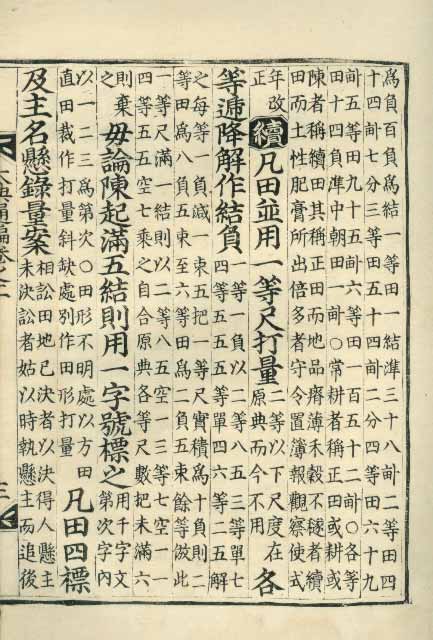 爲負百負爲結一等田一結準三十八畝二等田四
十四畝七分三等田五十四畝二分四等田六十九
畝五等田九十五畝六等田一百五十二畝○各等
田十四負準中朝田一畝○常耕者稱正田或耕或
陳者稱續田其稱正田而地品瘠薄禾穀不䆃者續
田而土性肥膏所出倍多者守令置簿報觀察使式
年改
正
續凡田並用一等尺打量
二等以下尺度在
原典而今不用
各
等遞降解作結負
一等一負以二等八五三等單七
四等五五五等單四六等二五解
之每等一負減一束五把一等尺實積爲十負則二
等田爲八負五束至六等田爲二負五束餘等倣此
一等尺滿一結則以二等八五空一三等七空一一
四等五五空七乘之自合原典各等尺數把未滿六
則棄
之
毋論陳起滿五結則用一字號標之
用千字文
第次字內
以一二三爲第次○田形不明處以方田
直田裁作打量斜缺處別作田形打量
凡田四標
及主名懸錄量案
相訟田地已決者以決得人懸主
未決訟者姑以時執懸主而追後
大典通編卷之二
三